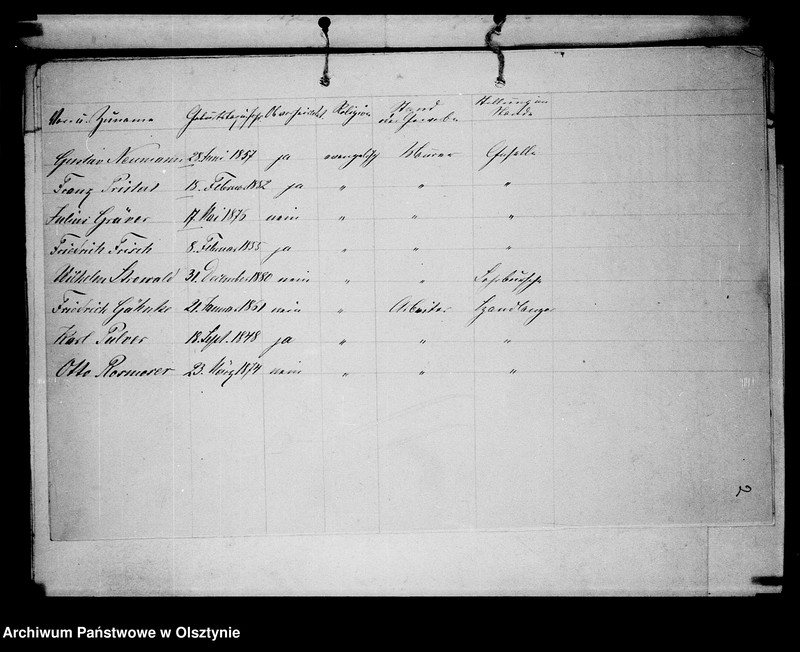 Vor- u. Zuname Geburtstag u. Jahr Ob verheirathet Religion Stand oder Gewerbe Stellung im Stande
Gustav Neumann 28. Juni 1857 ja evangelisch Maurer Geselle
Franz 18. Februar 1852 ja " " "
Julius Gräver 17. Mai 1876 nein " " "
Friedrich Frisch 8. Februar 1855 ja " " "
Wilhelm Strewald 31. Dezember 1880 nein " " Lehrbursche
Friedrich 21. Januar 1861 nein " Arbeiter Handlanger
Karl Pulver 18. Sept. 1848 ja " " "
Otto 23. März 1874 nein " " "
2
Archiwum Państwowe w Olsztynie